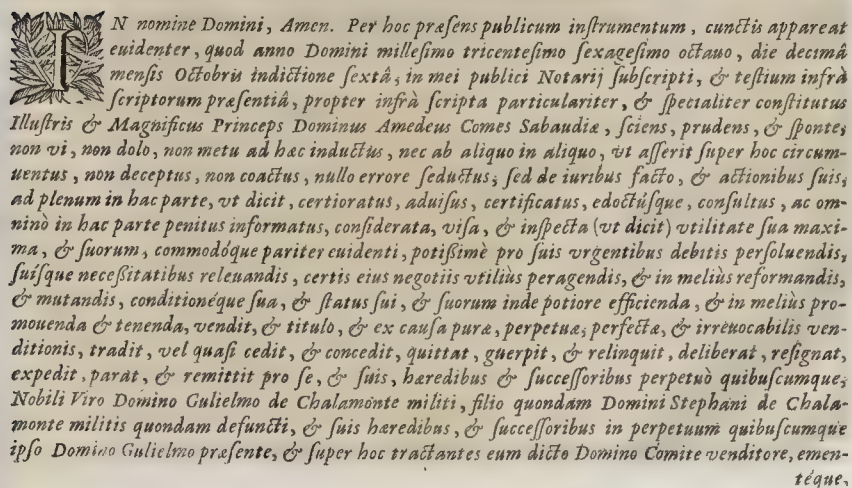 IN nomine Domini, Amen. Per hoc præsens publicum instrumentum, cunctis appareat
euidenter, quod anno Domini millesimo tricentesimo sexagesimo octauo, die decimâ
mensis Octobris indictione sextâ, in mei publici Notarij subscripti, & testium infrà
scriptorum præsentiâ, propter infrà scripta particulariter, & specialiter constitutus
Illustris & Magnificus Princeps Dominus Amedeus Comes Sabaudiæ, sciens, prudens, & sponte,
non vi, non dolo, non metu ad hæc inductus, nec ab aliquo in aliquo, vt asserit super hoc circum-
uentus, non deceptus, non coactus, nullo errore seductus, sed de iuribus facto, & actionibus suis,
ad plenum in hac parte, vt dicit, certioratus, aduisus, certificatus, edoctúsque, consultus, ac om-
ninò in hac parte penitus informatus, considerata, visa, & inspecta (vt dicit) vtilitate sua maxi-
ma, & suorum, commodóque pariter euidenti, potißimè pro suis vrgentibus debitis persoluendis,
suisque neceßitatibus releuandis, certis eius negotiis vtiliùs peragendis, & in meliùs reformandis,
& mutandis, conditionéque sua, & status sui, & suorum inde potiore efficienda, & in meliùs pro-
mouenda & tenenda, vendit, & titulo, & ex causa puræ, perpetuæ, perfectæ, & irreuocabilis ven-
ditionis, tradit, vel quasi cedit, & concedit, quittat, guerpit, & relinquit, deliberat, resignat,
expedit, parat, & remittit pro se, & suis, hæredibus & successoribus perpetuò quibuscumque,
Nobili Viro Domino Gulielmo de Chalamonte militi, filio quondam Domini Stephani de Chala-
monte militis quondam defuncti, & suis hæredibus, & successoribus in perpetuum quibuscumque
ipso Domino Gulielmo præsente, & super hoc tractantes eum dicto Domino Comite venditore, emen-
téque,